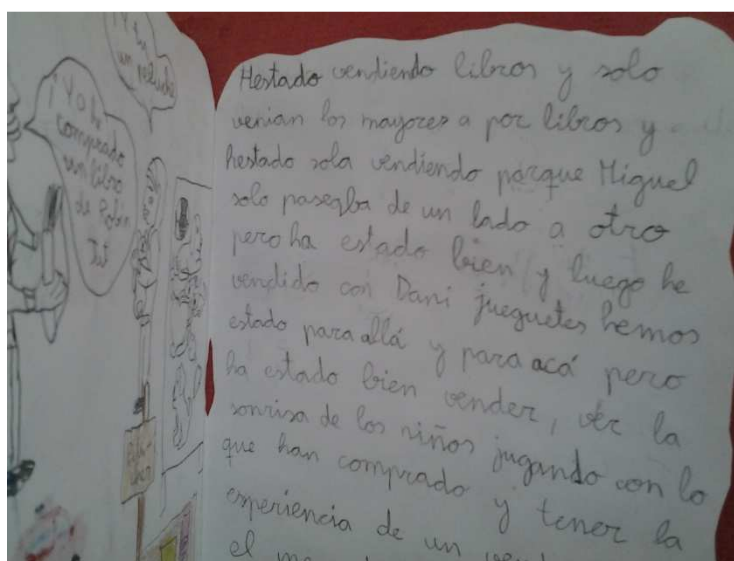 ¡Y tu
un peluche
¡Yo he
comprado
un libro
de
Hestado vendiendo libros y solo
venian los mayores a por libros y
hestado sola vendiendo porque Miguel
solo paseaba de un lado a otro
pero ha estado bien y luego he
vendido con Dani jueguetes hemos
estado para allá y para acá pero
ha estado bien vender, ver la
sonrisa de los niños jugando con lo
que han comprado y tener la
experiencia de un
el